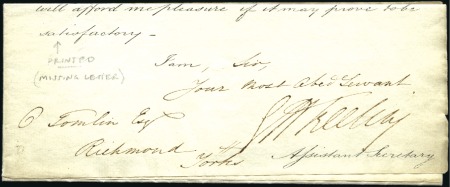 will afford me pleasure if it may prove to be
satisfactory -
PRINTED
(MISSING LETTER)
I am, Sir,
Your Most Obed Servant
Tomlin Esq
Richmond
Yorks
Assistant Secretary